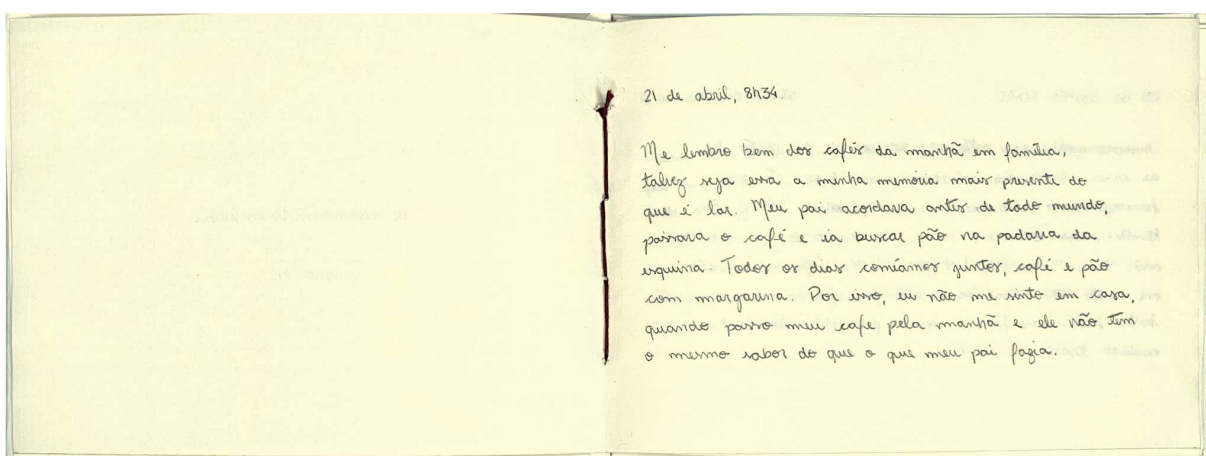 21 de abril, 8h34.
Me lembro bem dos cafés da manhã em família,
talvez seja essa a minha memória mais presente do
que é lar. Meu pai acordava antes de todo mundo,
passava o café e ia buscar pão na padaria da
esquina Todos os dias comíamos juntos, café e pão
com margarina. Por isso, eu não me sinto em casa,
quando passo meu cafe pela manhã e ele não tem
o mesmo sabor do que o que meu pai fazia.